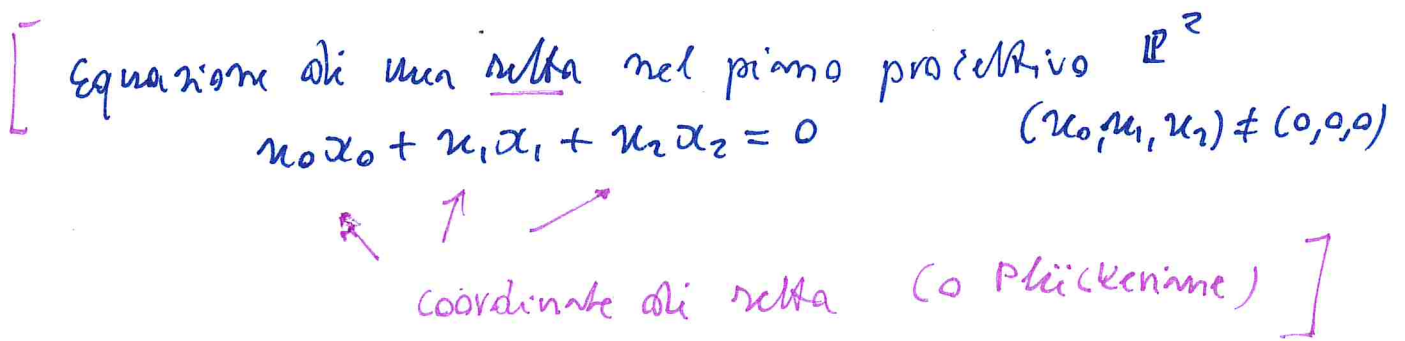 [ Equazione di una retta nel piano proiettivo ℙ²
u₀x₀ + u₁x₁ + u₂x₂ = 0 (u₀, u₁, u₂) ≠ (0,0,0)
coordinate di retta (o Plückeriane) ]